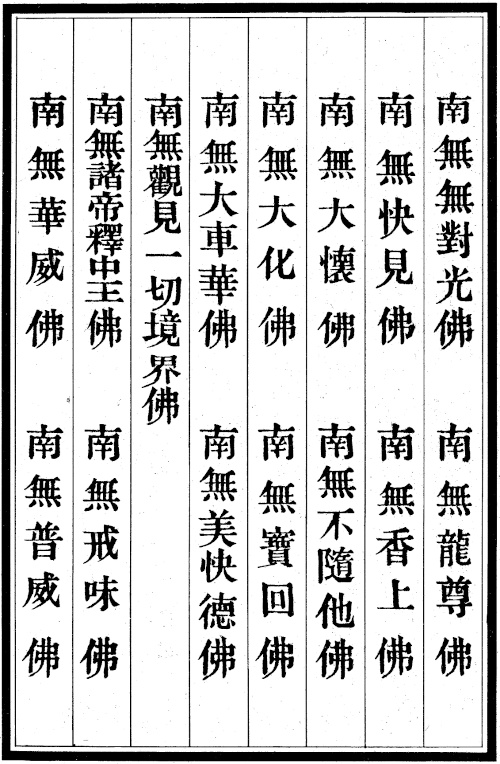 南無無對光佛　南無龍尊佛
南無快見佛　南無香上佛
南無大懷佛　南無不隨他佛
南無大化佛　南無寶回佛
南無大車華佛　南無美快德佛
南無觀見一切境界佛
南無諸帝釋中王佛　南無戒味佛
南無華威佛　南無普威佛